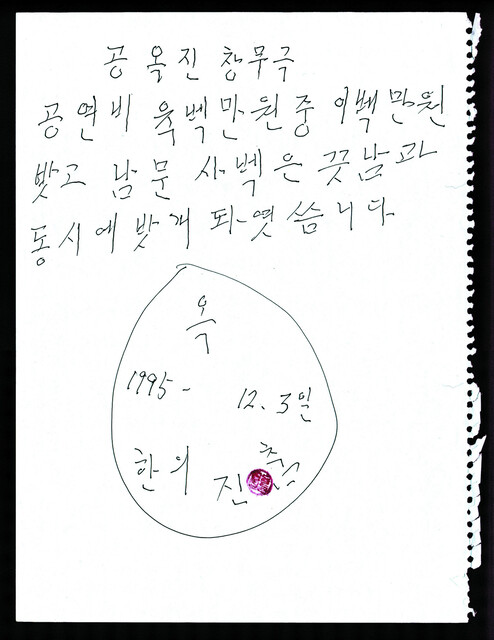 공 옥진 창무극
공연비 육벡만원중 이벡만원
밧고 남문 사벡은 끗남과
동시에 밧개 돠엿씀니다
1995- 12. 3일
한의 진